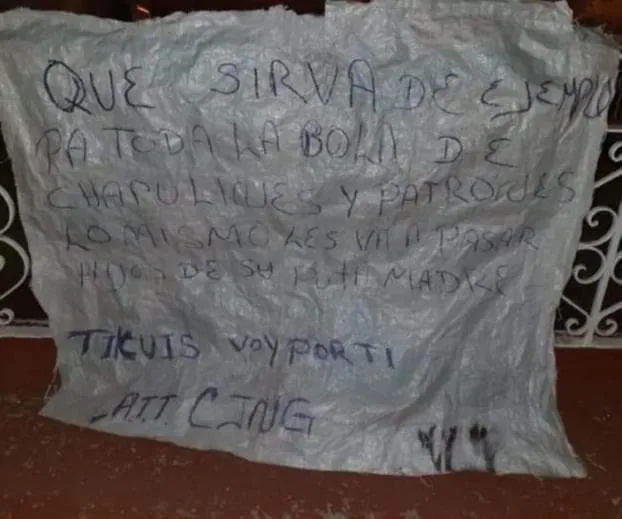 QUE SIRVA DE EJEMPLO
PA TODA LA BOLA DE
CHAPULINES Y PATRONES
LO MISMO LES VA A PASAR
HIJOS DE SU PUTA MADRE
TIKUIS VOY POR TI
-ATT. CJNG